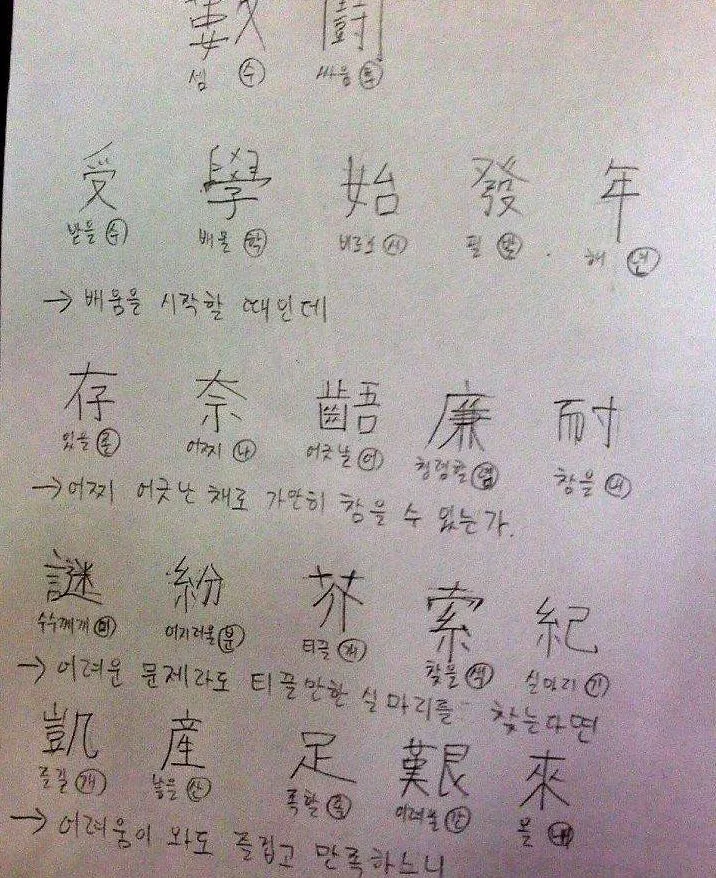 數 鬪
셈 수 싸움 투
受 學 始 發 年
받을 수 배울 학 비로소 시 필 발 해 년
→ 배움을 시작할 때인데
存 奈 齬 廉 耐
있을 존 어찌 나 어긋날 어 청렴할 염 참을 내
→ 어찌 어긋난 채로 가만히 참을 수 있는가.
謎 紛 芥 索 紀
수수께끼 미 어지러울 분 티끌 개 찾을 색 실마리 기
→ 어려운 문제라도 티끌만한 실마리를 찾는다면
凱 産 足 艱 來
즐길 개 낳을 산 족할 족 어려울 간 올 래
→ 어려움이 와도 즐겁고 만족하느니